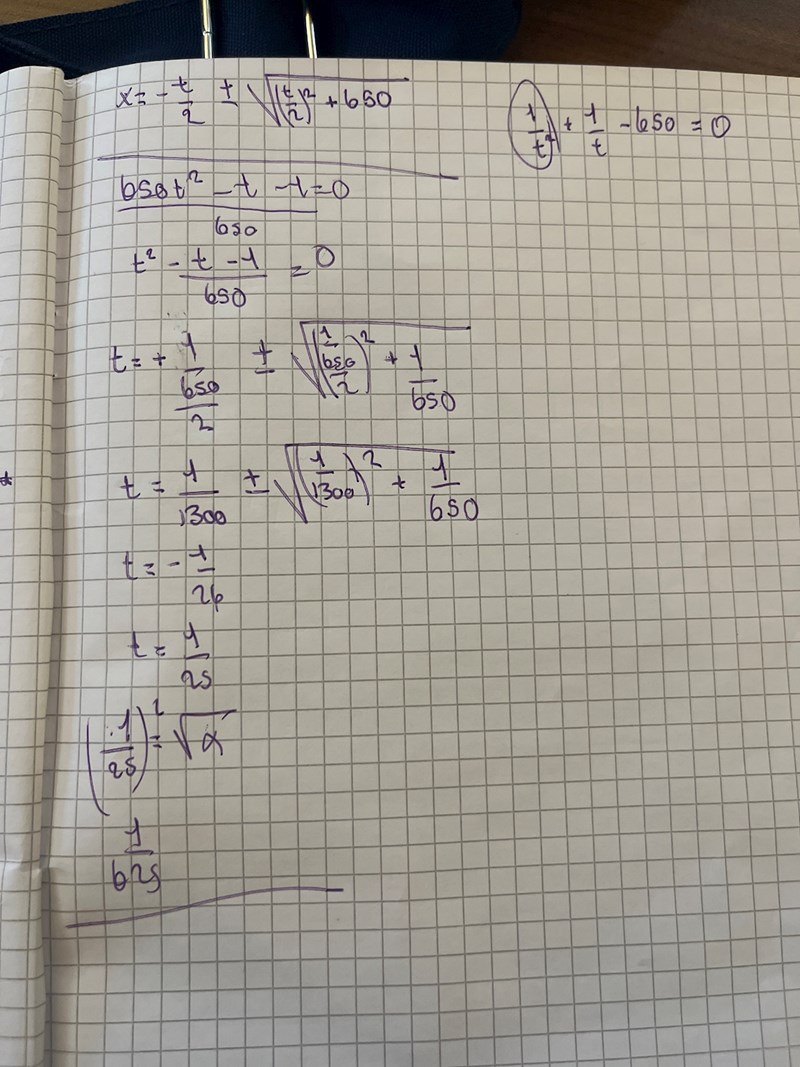 x = -t/2 ± √((t/2)² + 650)
1/t² + 1/t - 650 = 0
650t² - t - 1 = 0
650
t² - (t - 1)/650 = 0
t = + (1/650)/2 ± √(((1/650)/2)² + 1/650)
t = 1/1300 ± √((1/1300)² + 1/650)
t = - 1/26
t = 1/25
(1/25)² = √x
1/625